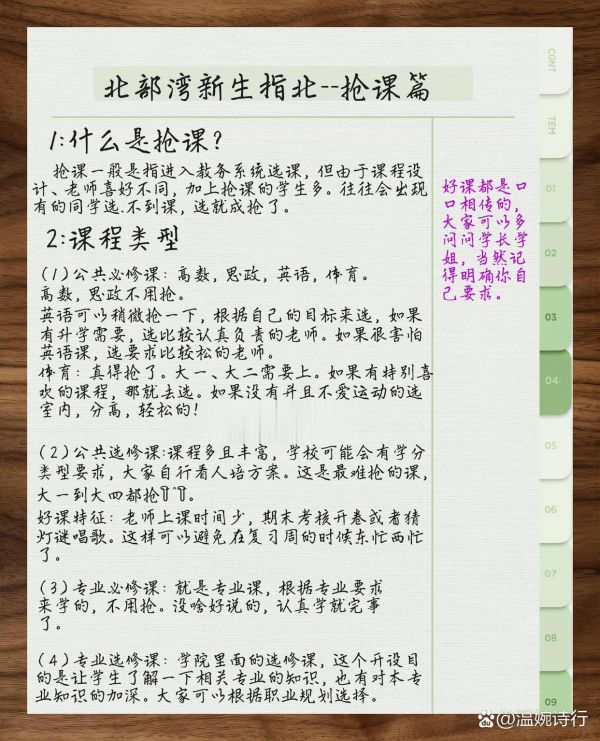 北部湾新生指北--抢课篇
1:什么是抢课？
抢课一般是指进入教务系统选课，但由于课程设
计、老师喜好不同，加上抢课的学生多。往往会出现
有的同学选.不到课，选就成抢了。
2:课程类型
（1）公共必修课：高数，思政，英语，体育。
高数，思政不用抢。
英语可以稍微抢一下，根据自己的目标来选，如果
有升学需要，选比较认真负责的老师。如果很害怕
英语课，选要求比较松的老师。
体育：真得抢了。大一、大二需要上。如果有特别喜
欢的课程，那就去选。如果没有并且不爱运动的选
室内，分高，轻松的！
（2）公共选修课:课程多且丰富，学校可能会有学分
类型要求，大家自行看人培方案。这是最难抢的课，
大一到大四都抢
好课特征：老师上课时间少，期末考核开卷或者猜
灯谜唱歌。这样可以避免在复习周的时候东忙西忙
了。
（3）专业必修课：就是专业课，根据专业要求
来学的，不用抢。没啥好说的，认真学就完事
了。
（4）专业选修课：学院里面的选修课，这个开设目
的是让学生了解一下相关专业的知识，也有对本专
业知识的加深。大家可以根据职业规划选择。
好课都是口
口相传的，
大家可以多
问问学长学
姐，当然记
得明确你自
己要求。
CONT
TEM
01
02
03
04
05
06
07
08
09
百度@温婉诗行